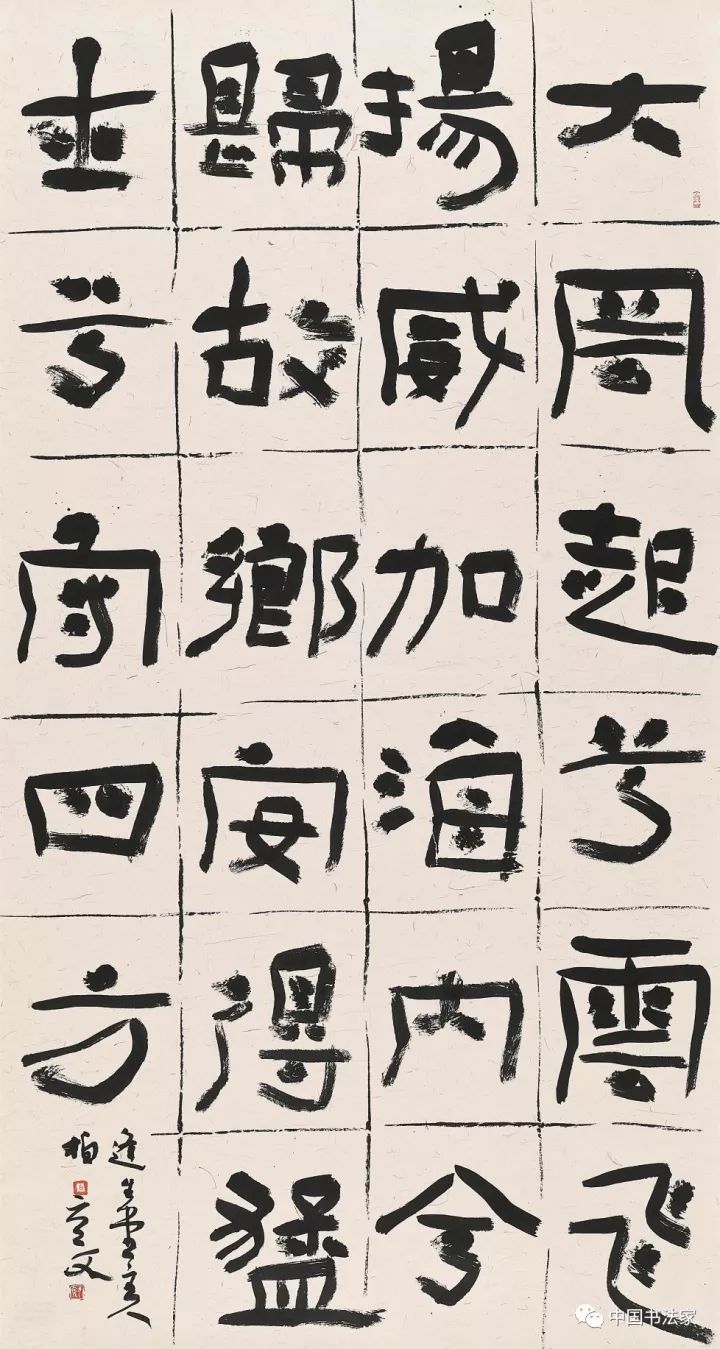 大風起兮雲飛
揚威加海内兮
歸故鄉安得猛
士兮守四方
中国书法家